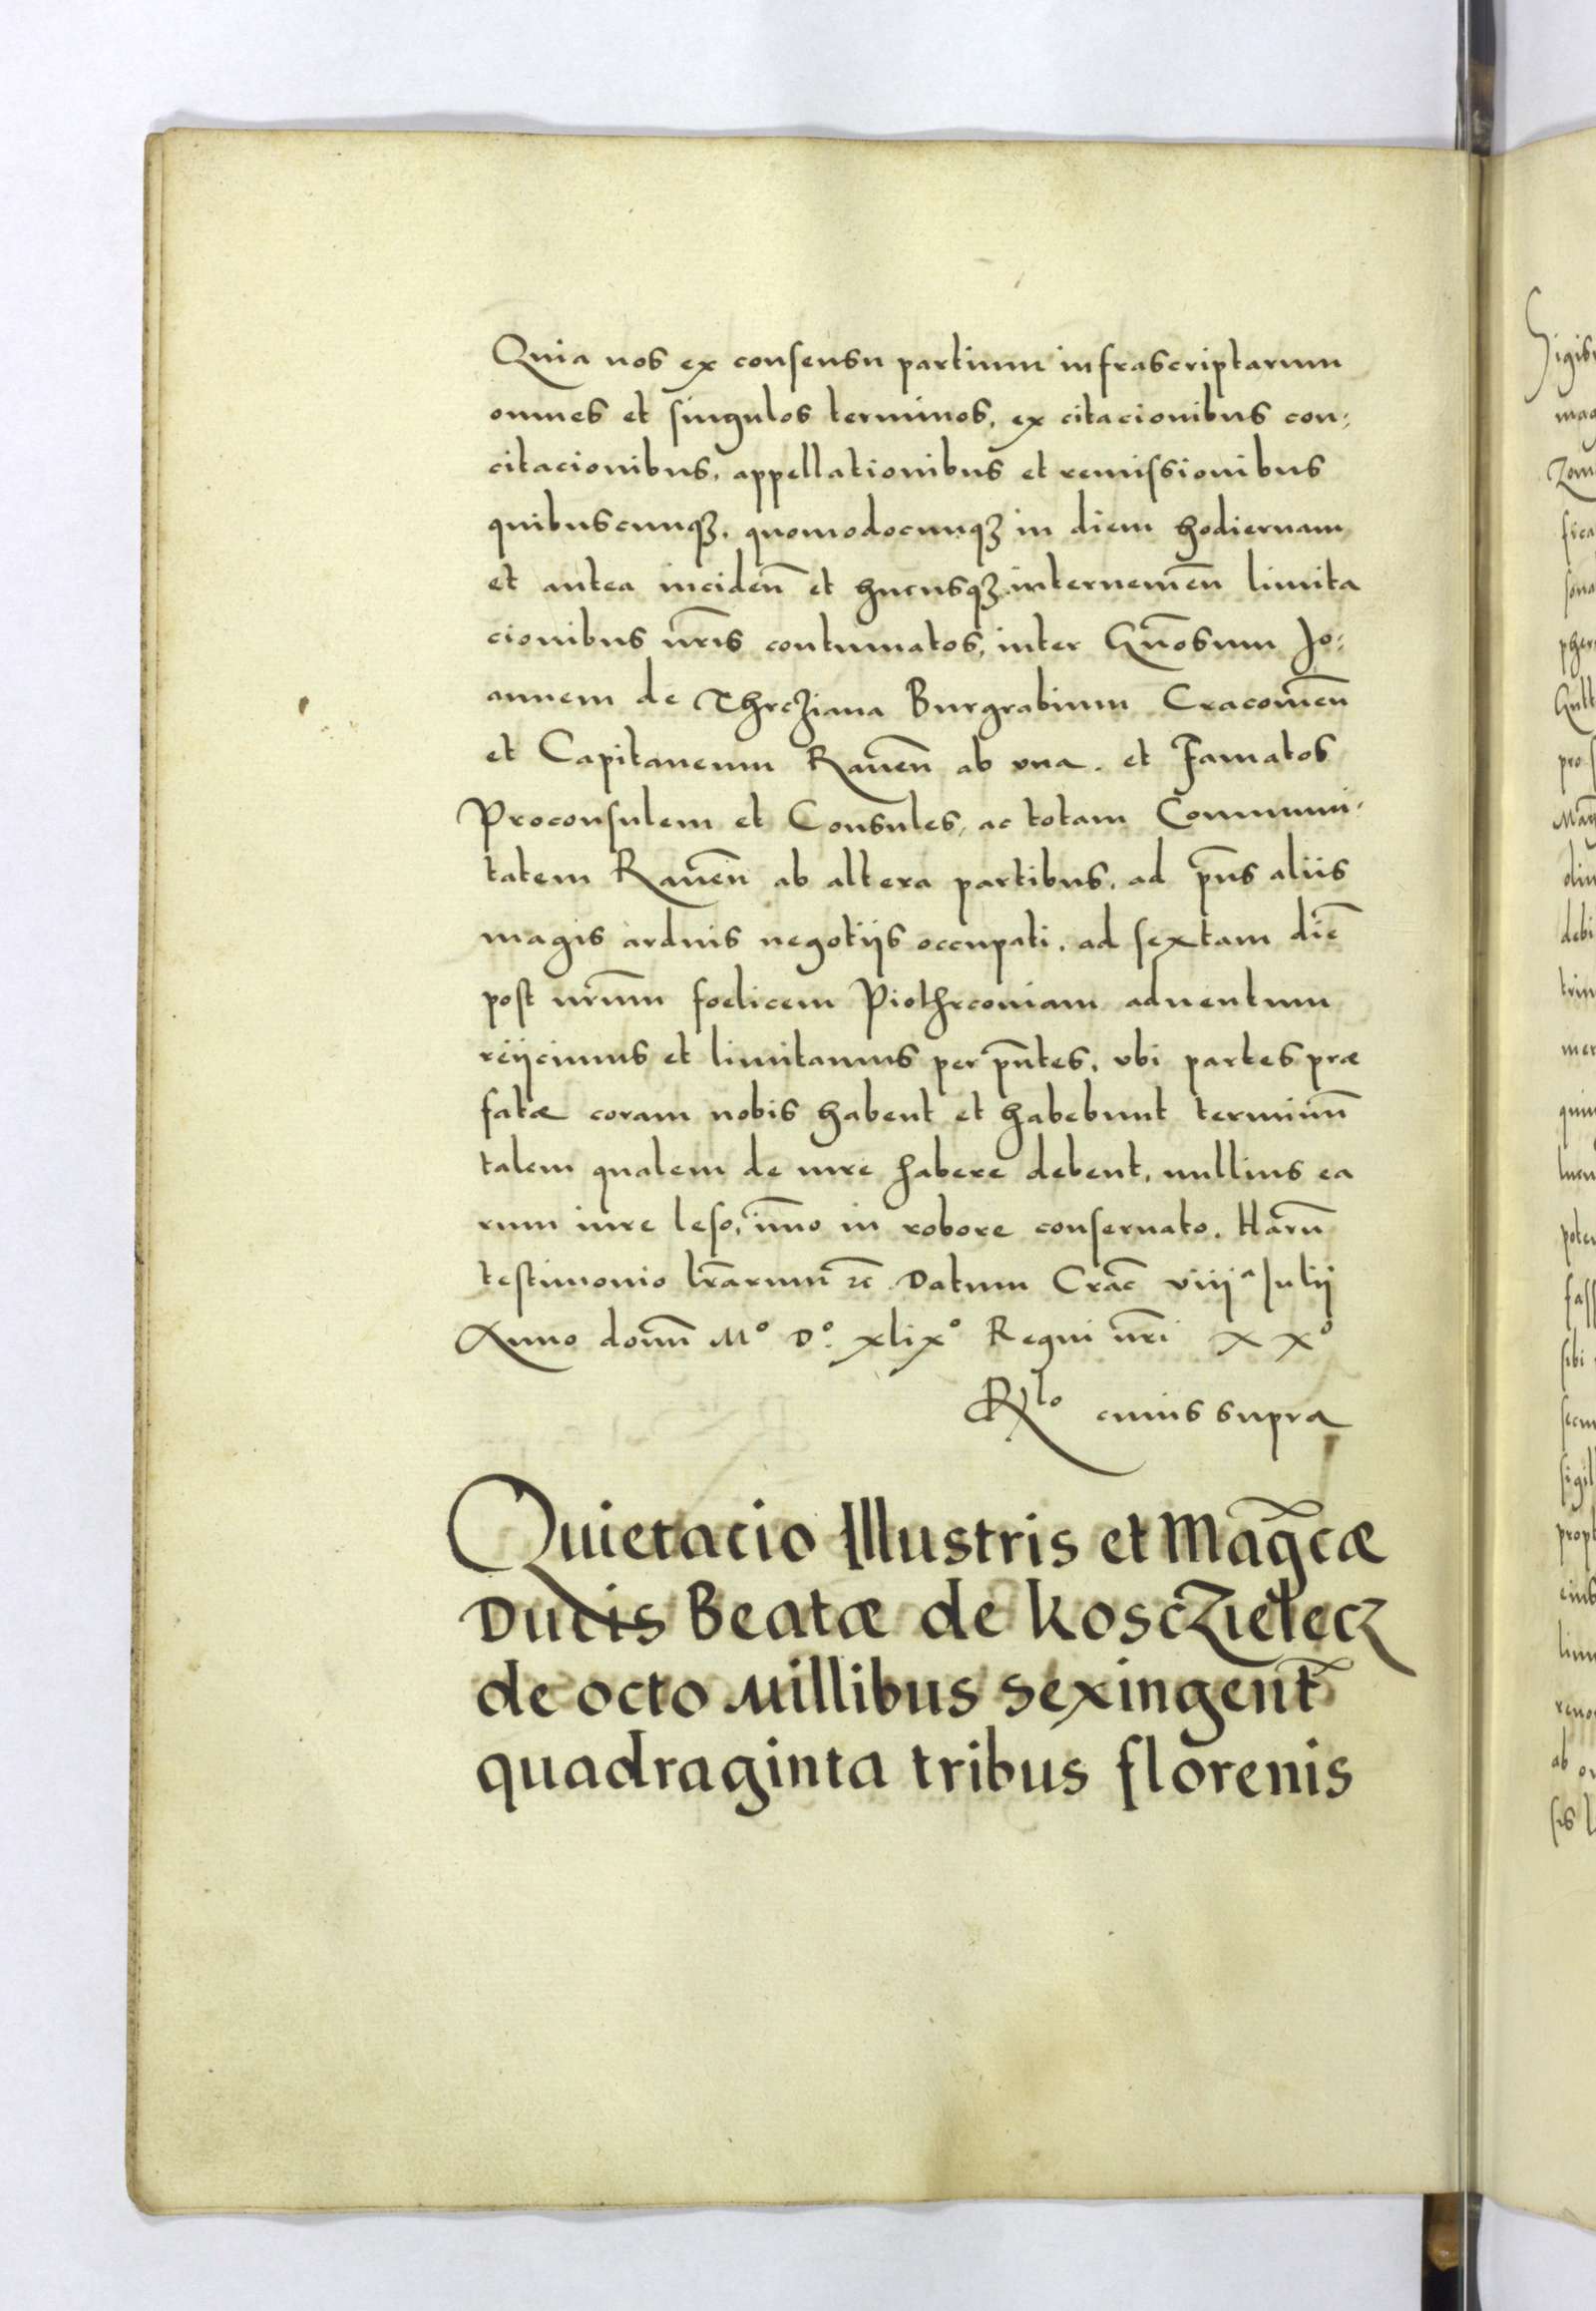 Quia nos ex consensu partium infrascriptarum
omnes et singulos terminos, ex citacionibus con:
citacionibus, appellationibus et remissionibus
quibuscunqꝫ, quomodocunqꝫ in diem hodiernam
et antea inciden̄ et hucusqꝫ interuenien̄ limita
cionibus nr̄is continuatos, inter Gn̄osum Jo:
annem de Threziana Burgrabium Cracouien̄
et Capitaneum Rauen̄ ab vna. et Famatos
Proconsulem et Consules, ac totam Communi:
tatem Rauen̄ ab altera partibus, ad pn̄s aliis
magis arduis negotijs occupati, ad sextam diē
post nr̄um foelicem Piothrcouiam aduentum
reijcimus et limitamus per pn̄tes, vbi partes præ
fatæ coram nobis habent et habebunt terminū
talem qualem de iure habere debent, nullius ea
rum iure leso, im̄o in robore conseruato. Harū
testimonio lr̄arum ⁊c̄ Datum Crac̄ viijᵃ Julij
Anno domī Mº Dº xlixº Regni nr̄i XXº
Rˡᵒ cuius supra
Quietacio Illustris et Mag̃cæ
Ducis Beatæ de Koscziełecz
de octo Millibus sexingent̃
quadraginta tribus florenis